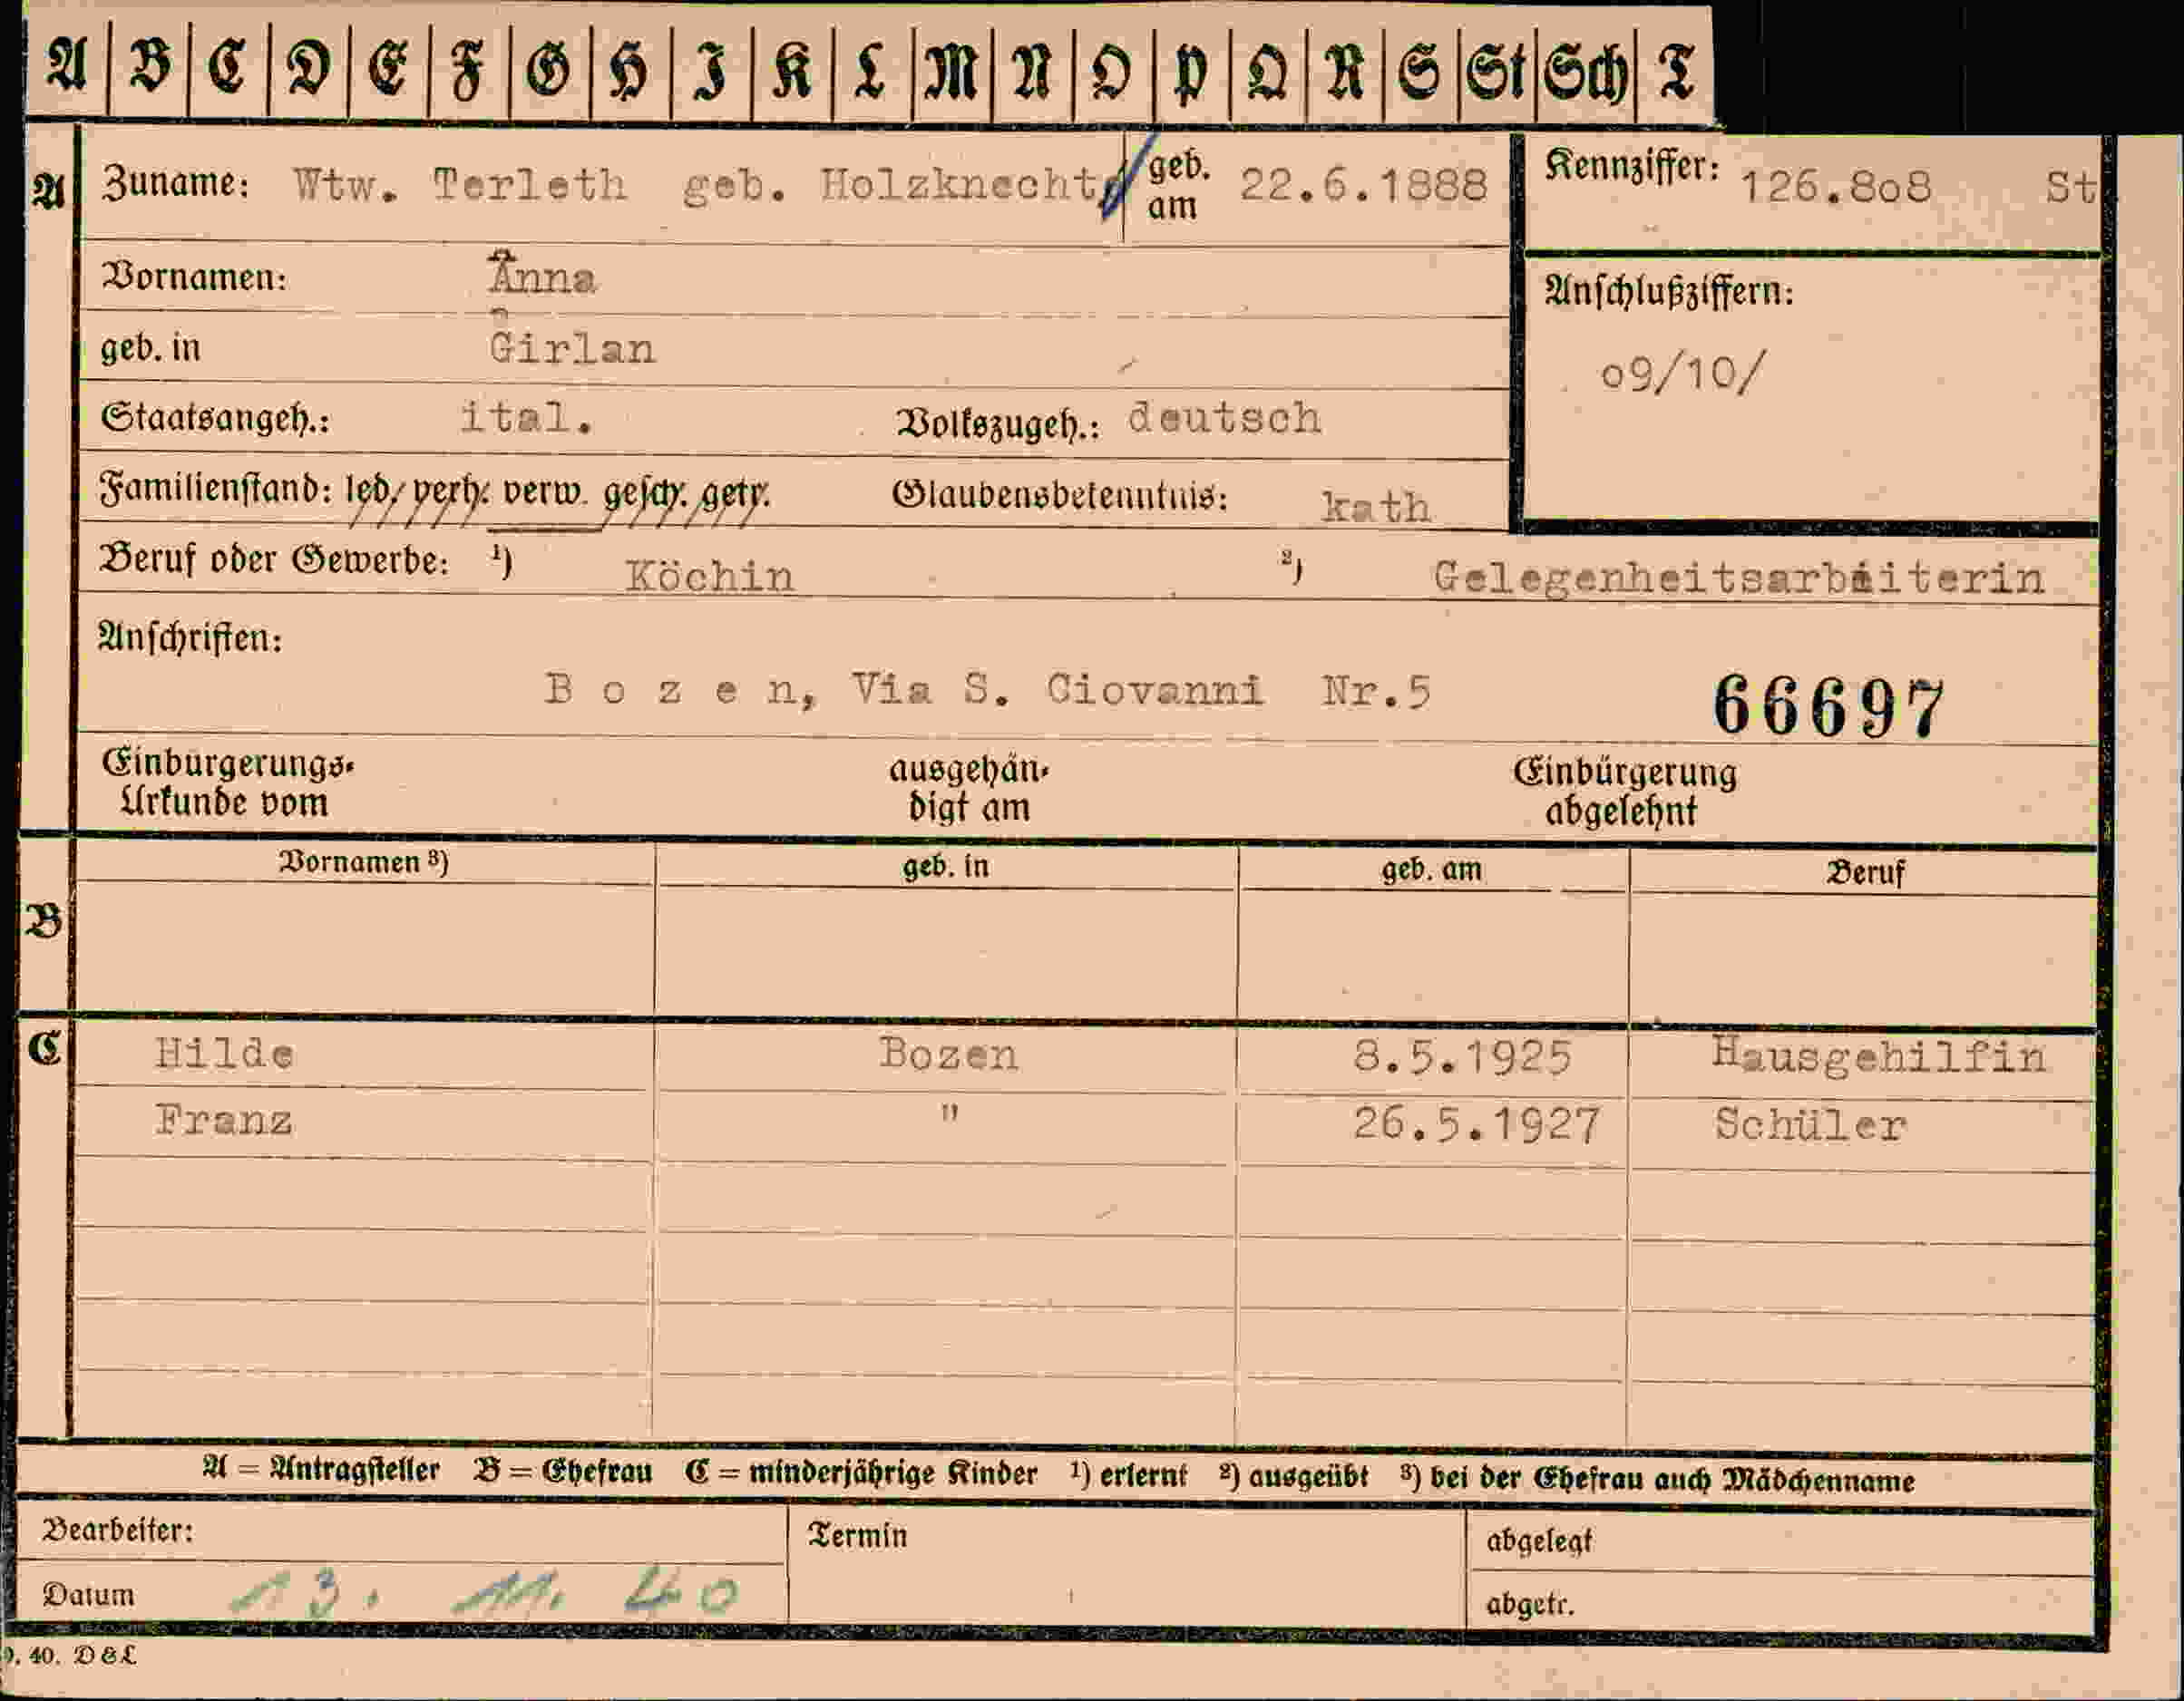 A B C D E F G H I K L M N O P Q R S St Sch T
A Zuname: Wtw. Terleth geb. Holzknecht geb. am 22.6.1888 Kennziffer: 126.8o8 St
Vornamen: Anna
Anschlußziffern:
geb. in Girlan
o9/10/
Staatsangeh.: ital. Volkszugeh.: deutsch
Familienstand: led. verh. verw. gesch. getr. Glaubensbekenntnis: kath
Beruf oder Gewerbe: 1) Köchin 2) Gelegenheitsarbeiterin
Anschriften:
B o z e n, Via S. Giovanni Nr.5 66697
Einbürgerungs- ausgehän- Einbürgerung
Urkunde vom digt am abgelehnt
Vornamen 3) geb. in geb. am Beruf
B
C Hilde Bozen 8.5.1925 Hausgehilfin
Franz " 26.5.1927 Schüler
A = Antragsteller B = Ehefrau C = minderjährige Kinder 1) erlernt 2) ausgeübt 3) bei der Ehefrau auch Mädchenname
Bearbeiter: Termin abgelegt
Datum 13. 11. 40 abgetr.
40. D & L